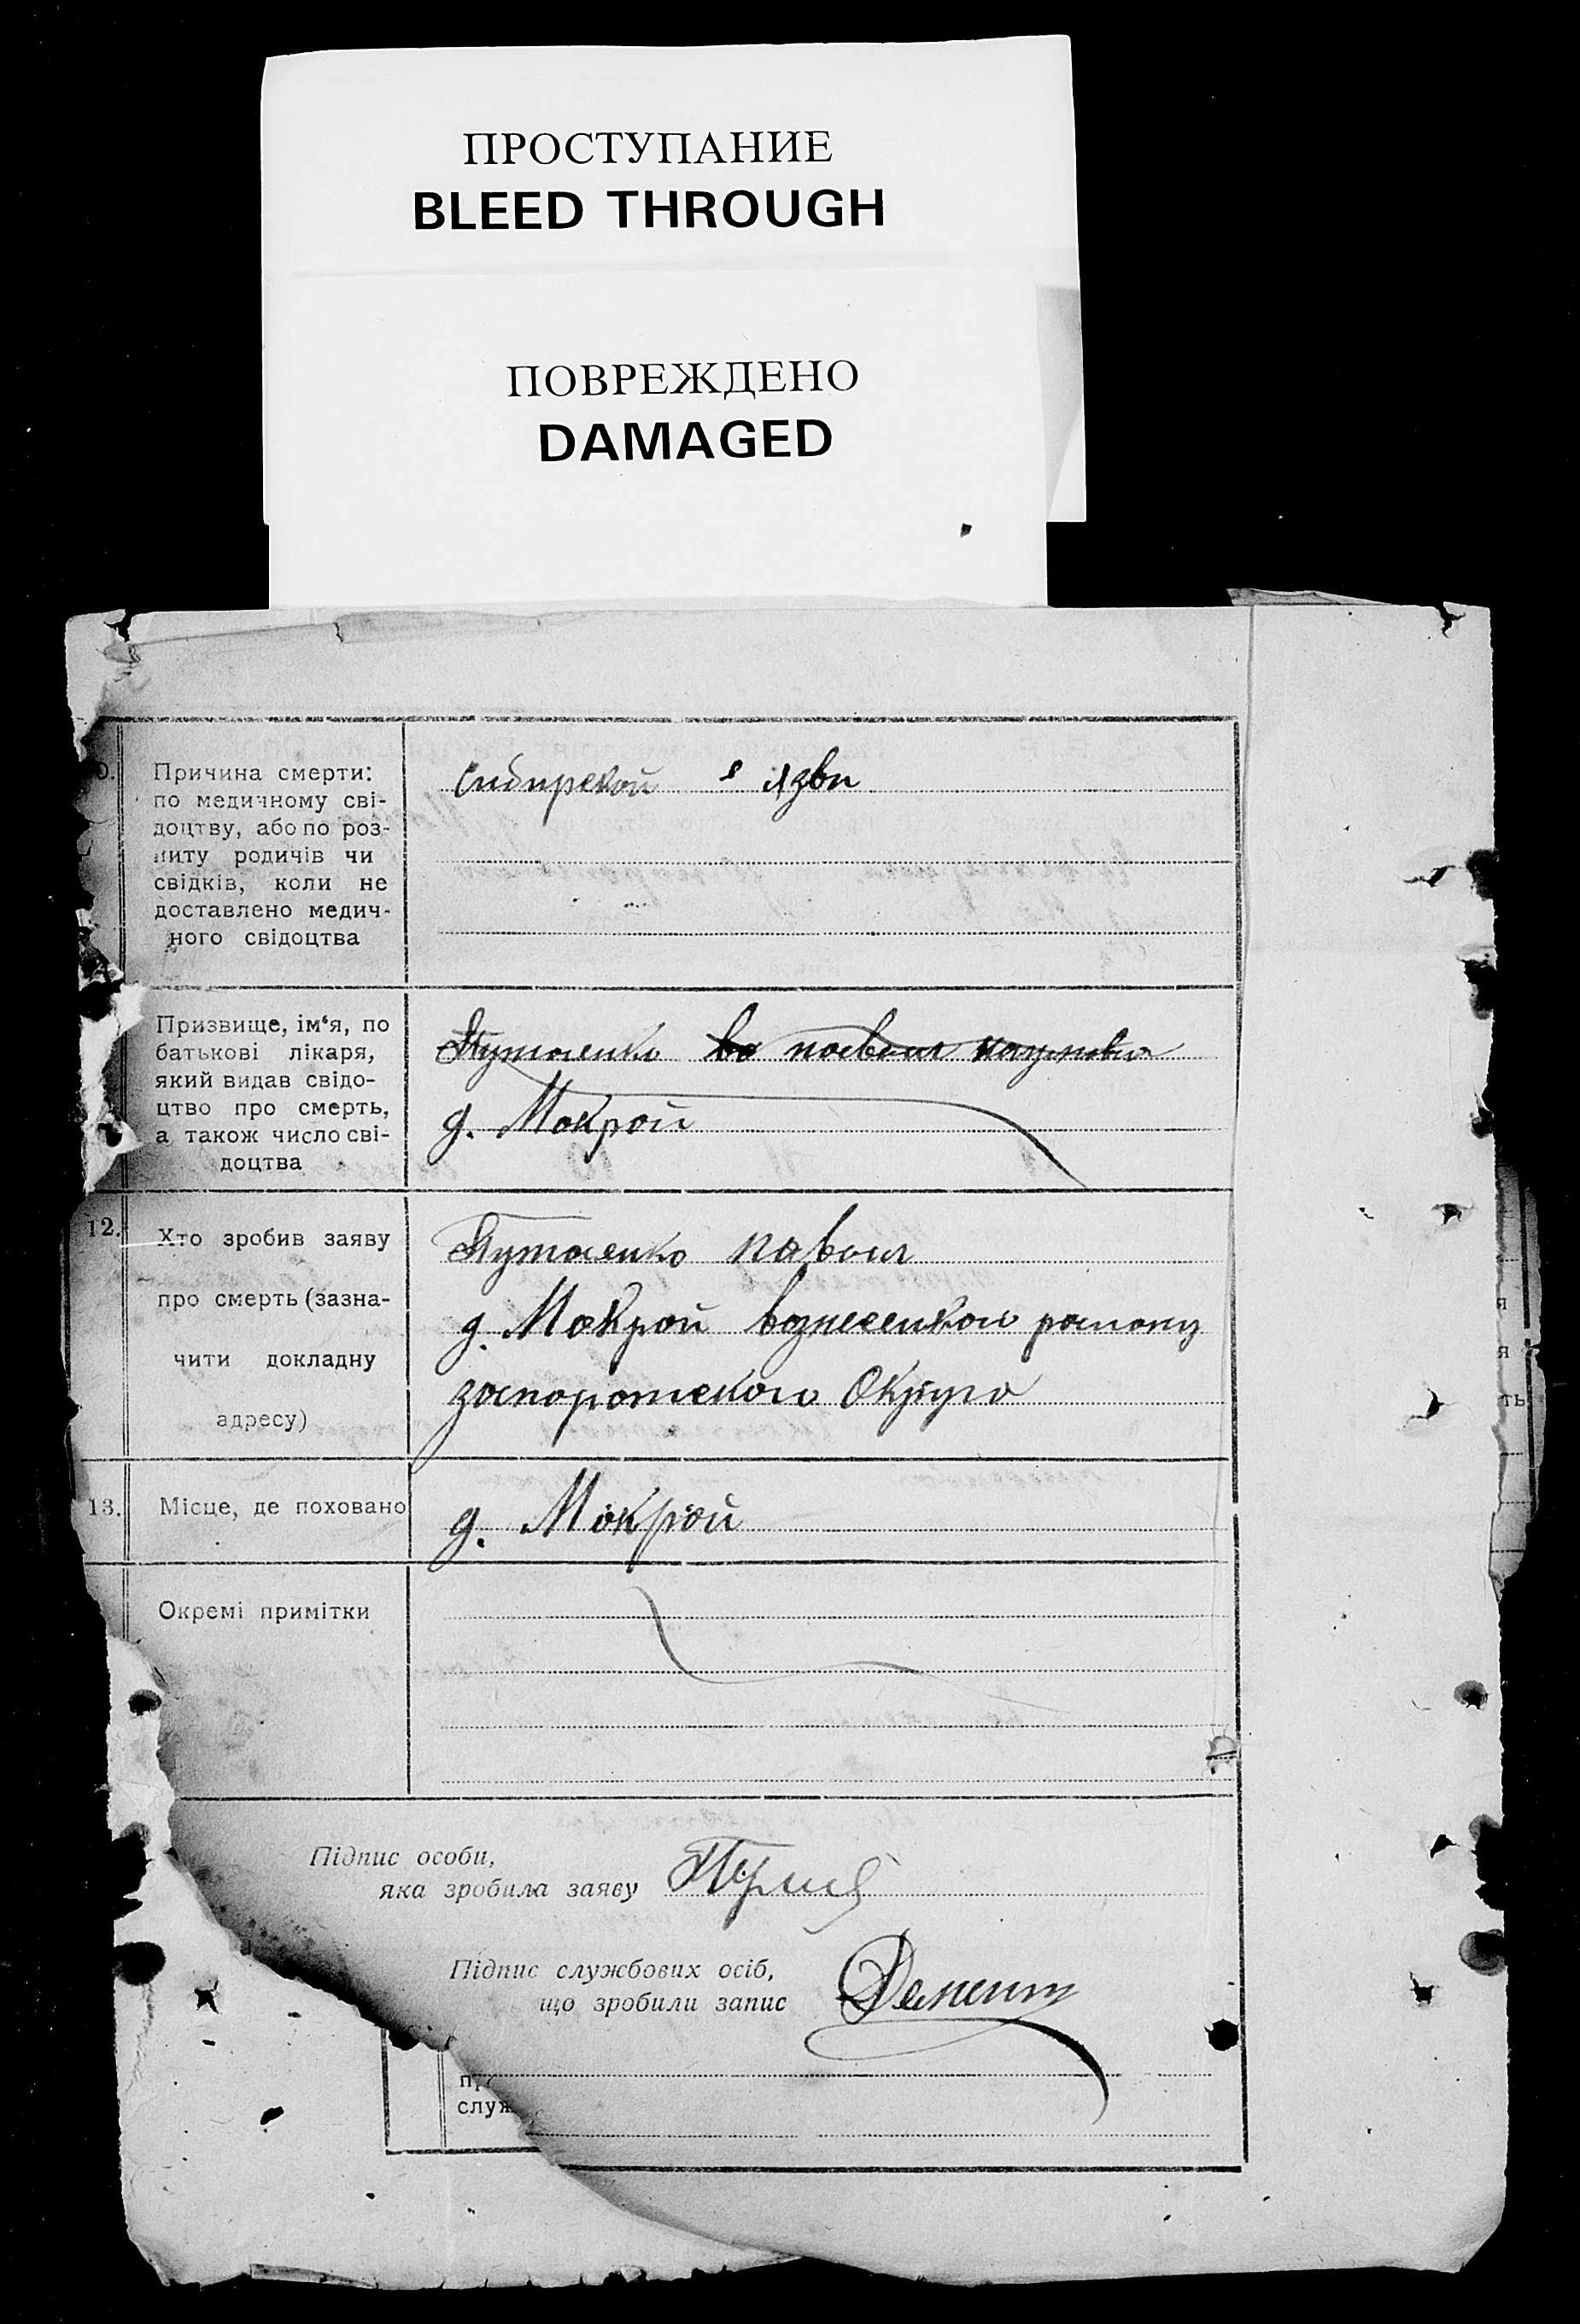 ПРОСТУПАНИЕ
BLEED THROUGH
ПОВРЕЖДЕНО
DAMAGED
Причина смерти:
по медичному сві-
доцтву, або по роз-
питу родичів чи
свідків, коли не
доставлено медич-
ного свідоцтва
Сибирской язви
Призвище, ім'я, по
батькові лікаря,
який видав свідо-
цтво про смерть,
а також число сві-
доцтва
д. Мокрой
12.
Хто зробив заяву
про смерть (зазна-
чити докладну
адресу)
павил
д. Мокрой
Округо
13. Місце, де поховано
д. Мокрой
Окремі примітки
Підпис особи,
яка зробила заяву
Підпис службових осіб,
що зробили запис
служ
я
я
ть